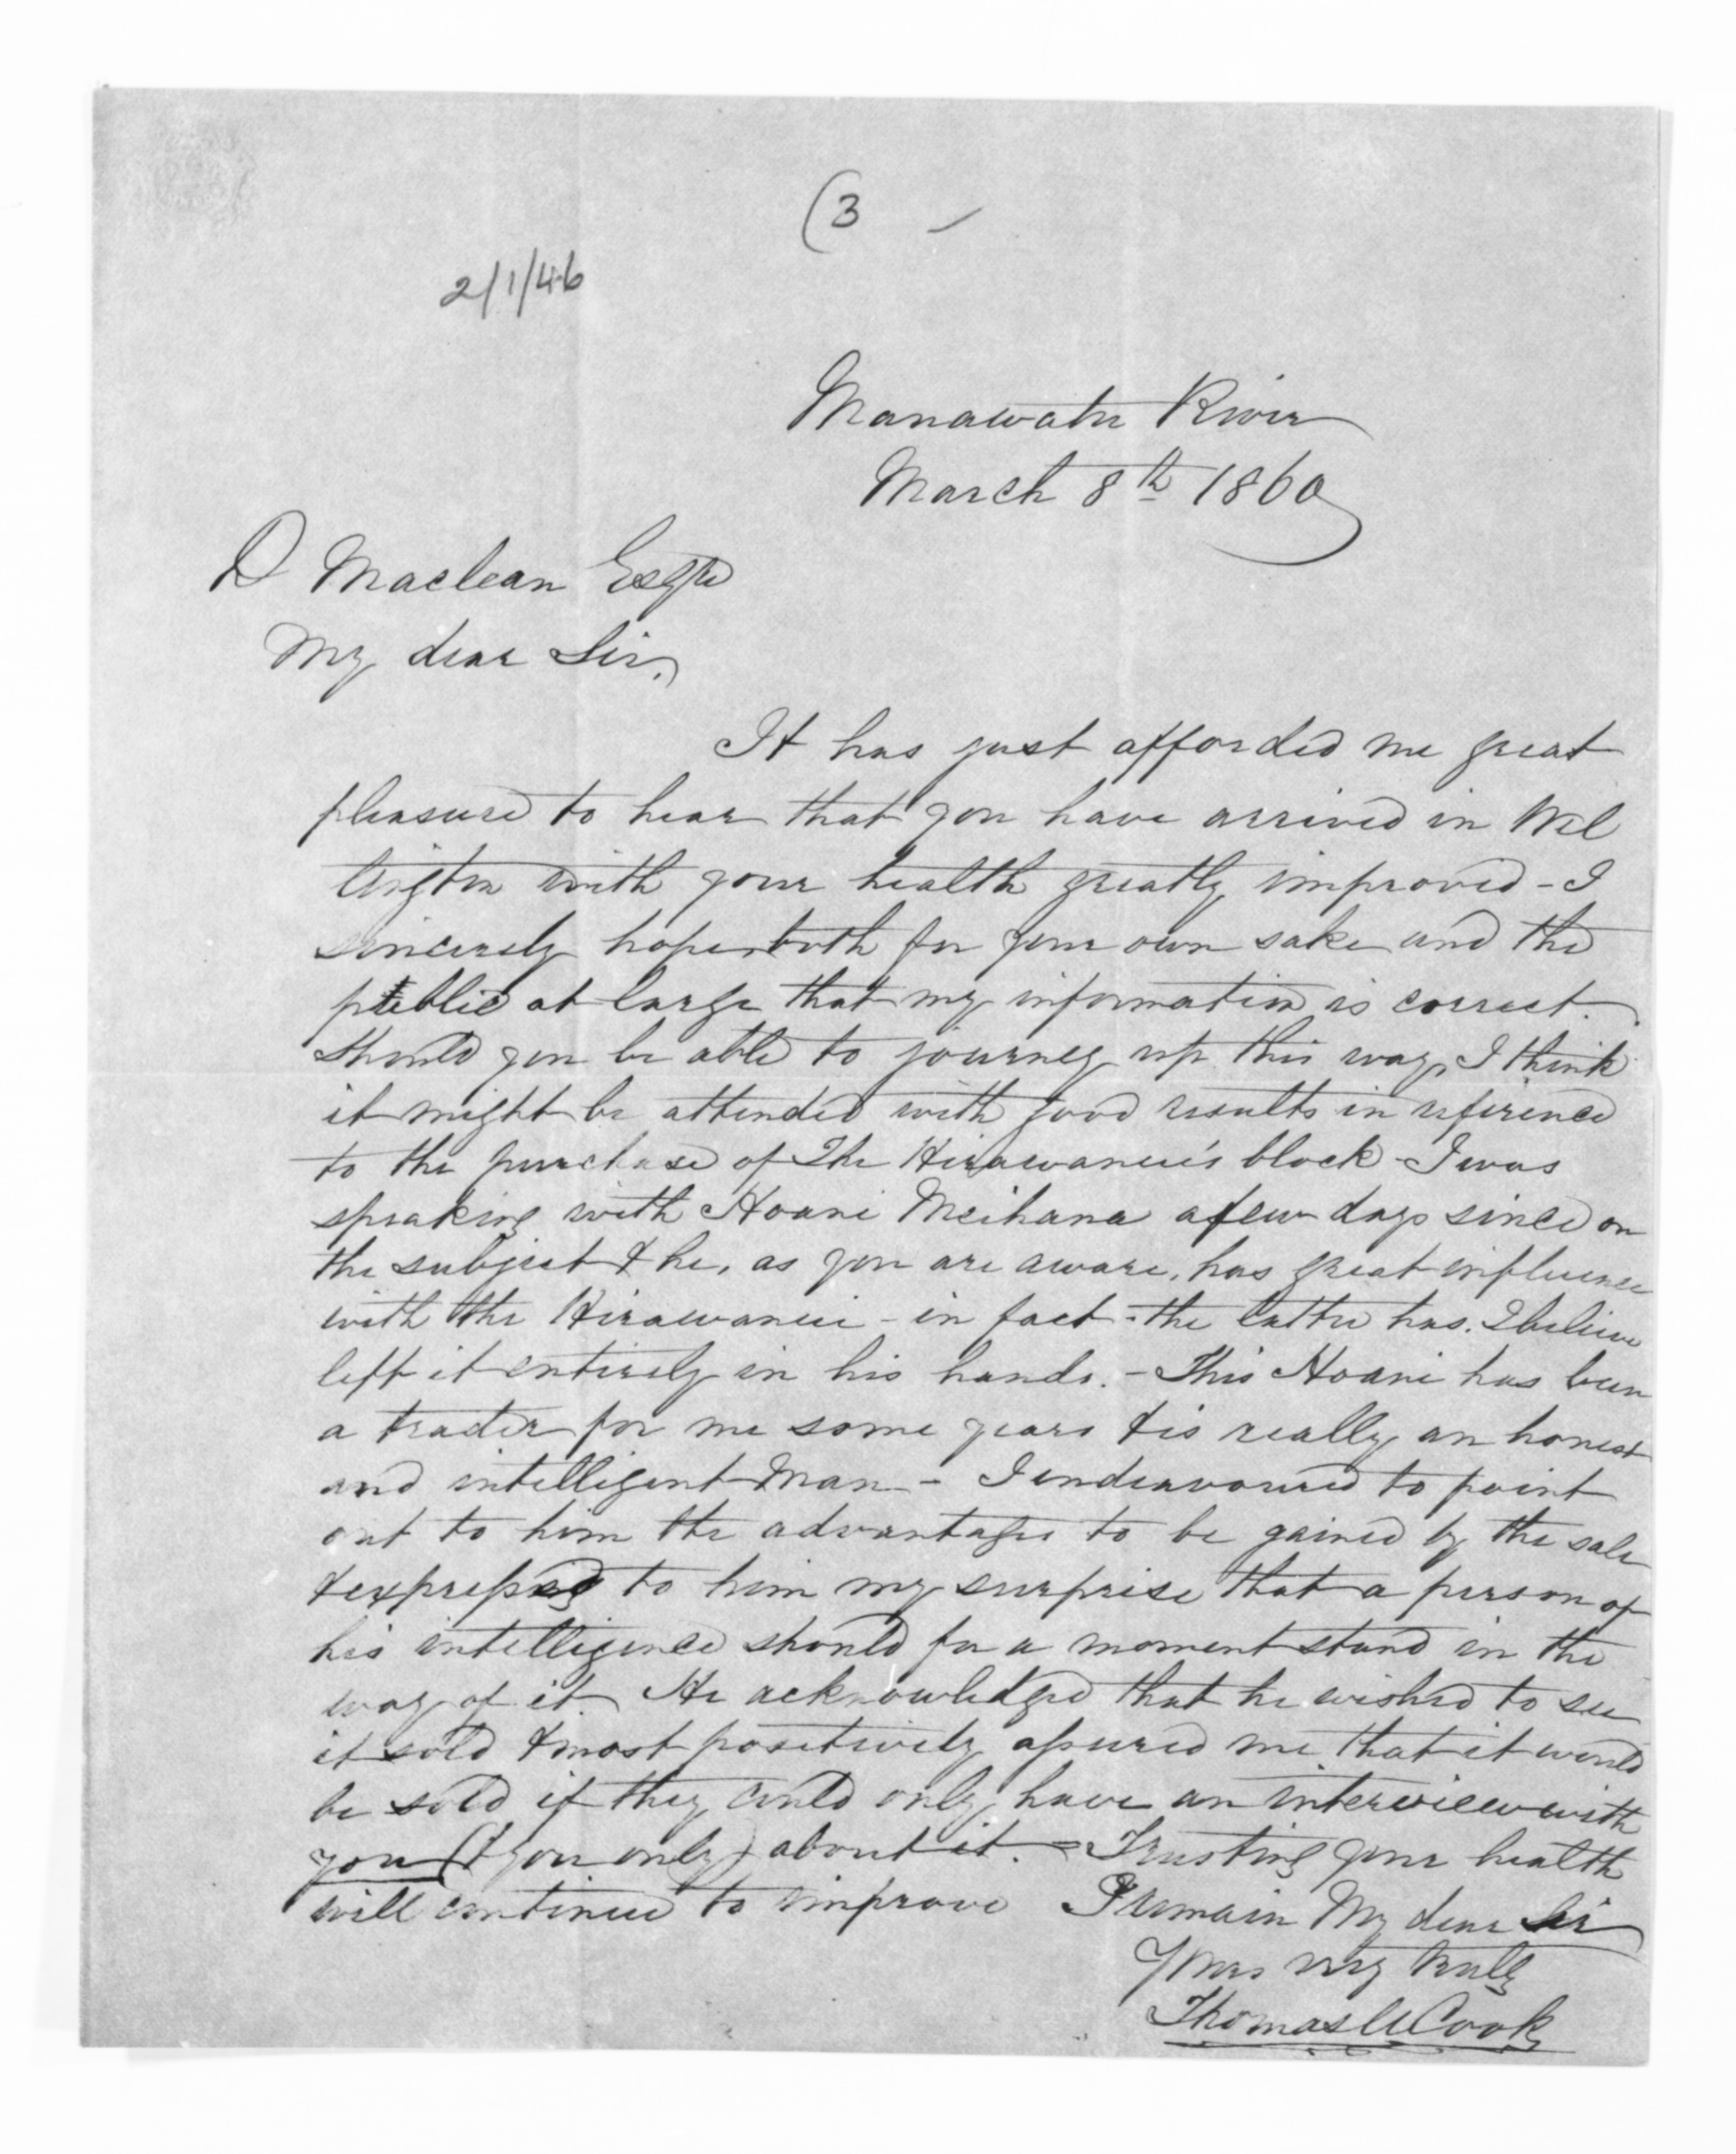 (3 -
2/1/46
Manawatu River
March 8th 1860
D Maclean Esqre
My dear Sir,
It has just afforded me great
pleasure to hear that you have arrived in Wel
lington with your health greatly improved - I
sincerely hope both for your own sake and the
public at large that my information is correct.
Should you be able to journey up this way, I think
it might be attended with good results in reference
to the purchase of The Hirawanui's block - I was
speaking with Hoani Meihana a few days since on
the subject & he, as you are aware, has great influence
with the Hirawanui - in fact - the latter has. I believe
left it entirely in his hands. - This Hoani has been
a trader for me some years & is really an honest
and intelligent Man - I endeavoured to point
out to him the advantages to be gained by the sale
& expressed to him my surprise that a person of
his intelligence should for a moment stand in the
way of it. He acknowledged that he wished to see
it sold & most positively assured me that it would
be sold if they could only have an interview with
you (& you only) about it. - Trusting your health
will continue to improve I remain My dear Sir
Yours very truly
Thomas U Cook